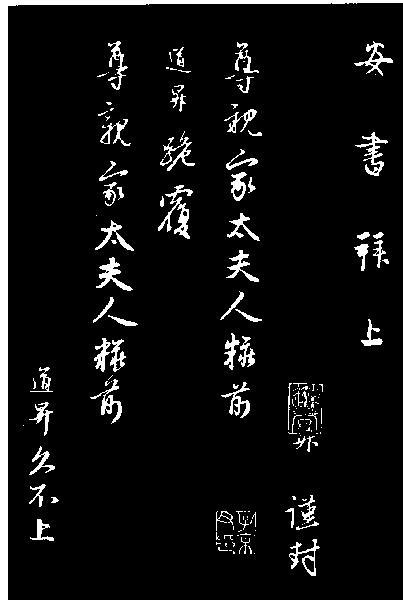 安書拜上
昇謹封
尊親家太夫人粧前
子京父印
道昇跪覆
尊親家太夫人粧前
道昇久不上